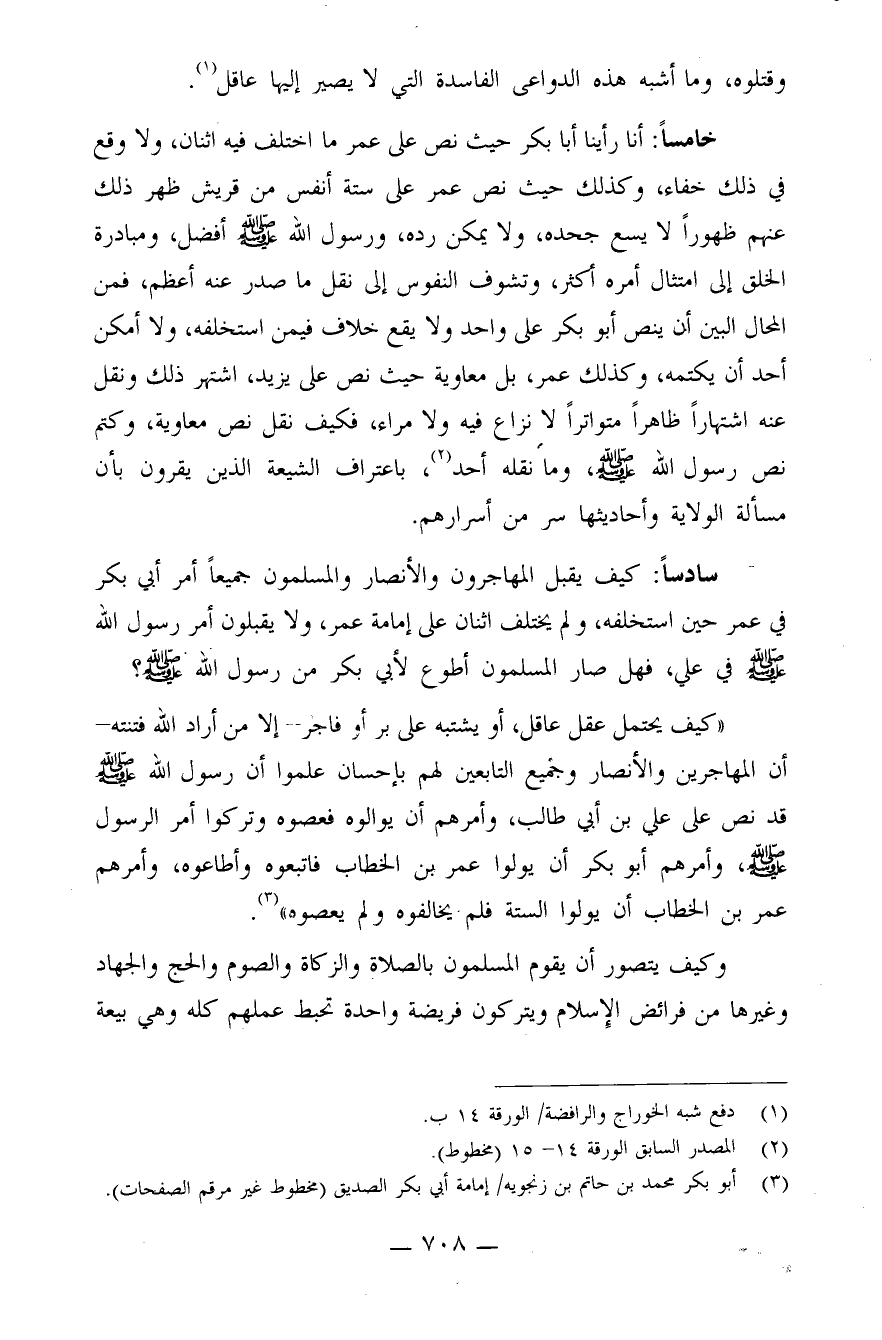 وقتلوه، وما أشبه هذه الدواعى الفاسدة التي لا يصير إليها عاقل(١).
خامساً: أنا رأينا أبا بكر حيث نص على عمر ما اختلف فيه اثنان، ولا وقع
في ذلك خفاء، وكذلك حيث نص عمر على ستة أنفس من قريش ظهر ذلك
عنهم ظهوراً لا يسع جحده، ولا يمكن رده، ورسول الله ﷺ أفضل، ومبادرة
الخلق إلى امتثال أمره أكثر، وتشوف النفوس إلى نقل ما صدر عنه أعظم، فمن
المحال البين أن ينص أبو بكر على واحد ولا يقع خلاف فيمن استخلفه، ولا أمكن
أحد أن يكتمه، وكذلك عمر، بل معاوية حيث نص على يزيد، اشتهر ذلك ونقل
عنه اشتهاراً ظاهراً متواتراً لا نزاع فيه ولا مراء، فكيف نقل نص معاوية، وكتم
نص رسول الله ﷺ، وما نقله أحد(٢)، باعتراف الشيعة الذين يقرون بأن
مسألة الولاية وأحاديثها سر من أسرارهم.
سادساً: كيف يقبل المهاجرون والأنصار والمسلمون جميعاً أمر أبي بكر
في عمر حين استخلفه، ولم يختلف اثنان على إمامة عمر، ولا يقبلون أمر رسول الله
ﷺ في علي، فهل صار المسلمون أطوع لأبي بكر من رسول الله ﷺ؟
«كيف يحتمل عقل عاقل، أو يشتبه على بر أو فاجر-- إلا من أراد الله فتنته–
أن المهاجرين والأنصار وجميع التابعين لهم بإحسان علموا أن رسول الله ﷺ
قد نص على علي بن أبي طالب، وأمرهم أن يوالوه فعصوه وتركوا أمر الرسول
ﷺ، وأمرهم أبو بكر أن يولوا عمر بن الخطاب فاتبعوه وأطاعوه، وأمرهم
عمر بن الخطاب أن يولوا الستة فلم يخالفوه ولم يعصوه»(٣).
وكيف يتصور أن يقوم المسلمون بالصلاة والزكاة والصوم والحج والجهاد
وغيرها من فرائض الإسلام ويتركون فريضة واحدة تحبط عملهم كله وهي بيعة
(١) دفع شبه الخوراج والرافضة/ الورقة ١٤ ب.
(٢) المصدر السابق الورقة ١٤– ١٥ (مخطوط).
(٣) أبو بكر محمد بن حاتم بن زنجويه/ إمامة أبي بكر الصديق (مخطوط غير مرقم الصفحات).
— ٧٠٨ —